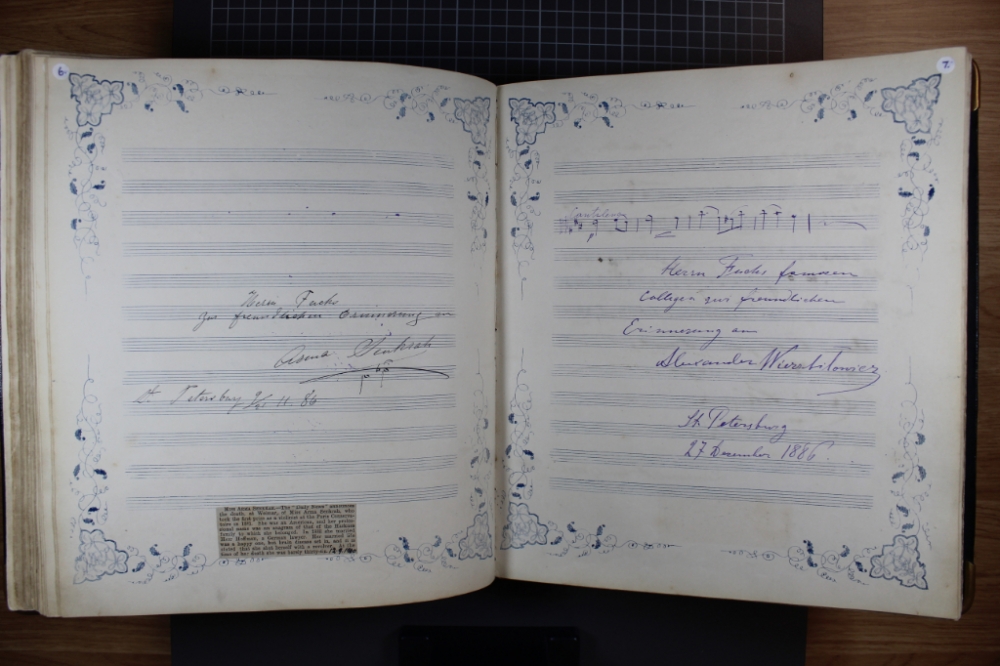 6
Herrn Fuchs
zur freundlichen Erinnerung an
Arma Senkrah
St. Petersburg 11. 86
Miss Arma Senkrah.—The "Daily News" announces
the death, at Weimar, of Miss Arma Senkrah, who
took the first prize as a violinist at the Paris Conserva-
toire in 1881. She was an American, and her profes-
sional name was an anagram of that of the Harkness
family to which she belonged. In 1888 she married
Herr Hoffmann, a German lawyer. Her married life
was a happy one, but brain disease set in, and it is
stated that she shot herself with a revolver. At the
time of her death she was barely
7.
Herrn Fuchs famosen
Collegen zur freundlichen
Erinnerung an
Alexander Wierzbilowicz
St. Petersburg
27 Dezember 1886.